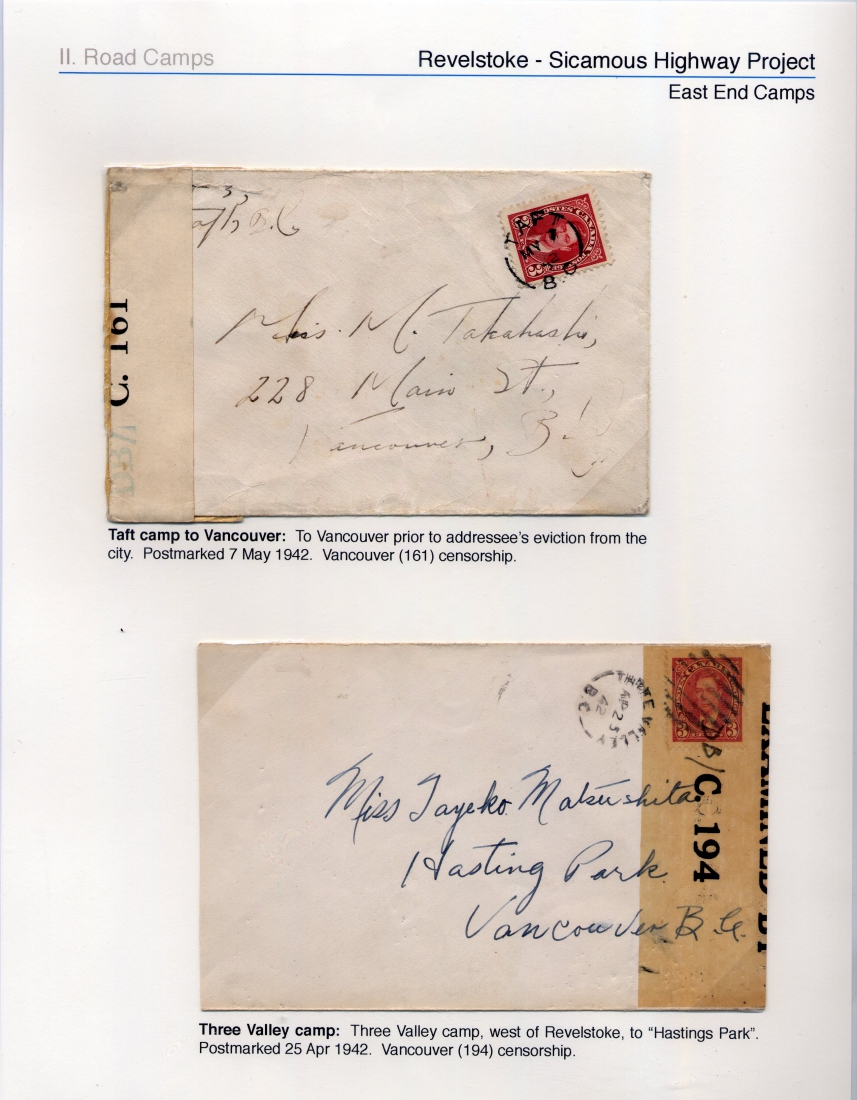 II. Road Camps
Revelstoke - Sicamous Highway Project
East End Camps
B.C.
TAFT
MY 7
42
B.C
POSTES CANADA POSTAGE
3 3
C. 161
DB/
Miss. M. Takahashi,
228 Main St.,
Vancouver, B.C.
Taft camp to Vancouver: To Vancouver prior to addressee's eviction from the
city. Postmarked 7 May 1942. Vancouver (161) censorship.
THREE VALLEY
AP 25
42
B.C
POSTES CANADA
3 3
DB/
C. 194
EXAMINED BY
Miss Tayeko Matsushita
Hasting Park
Vancouver B.C.
Three Valley camp: Three Valley camp, west of Revelstoke, to "Hastings Park".
Postmarked 25 Apr 1942. Vancouver (194) censorship.